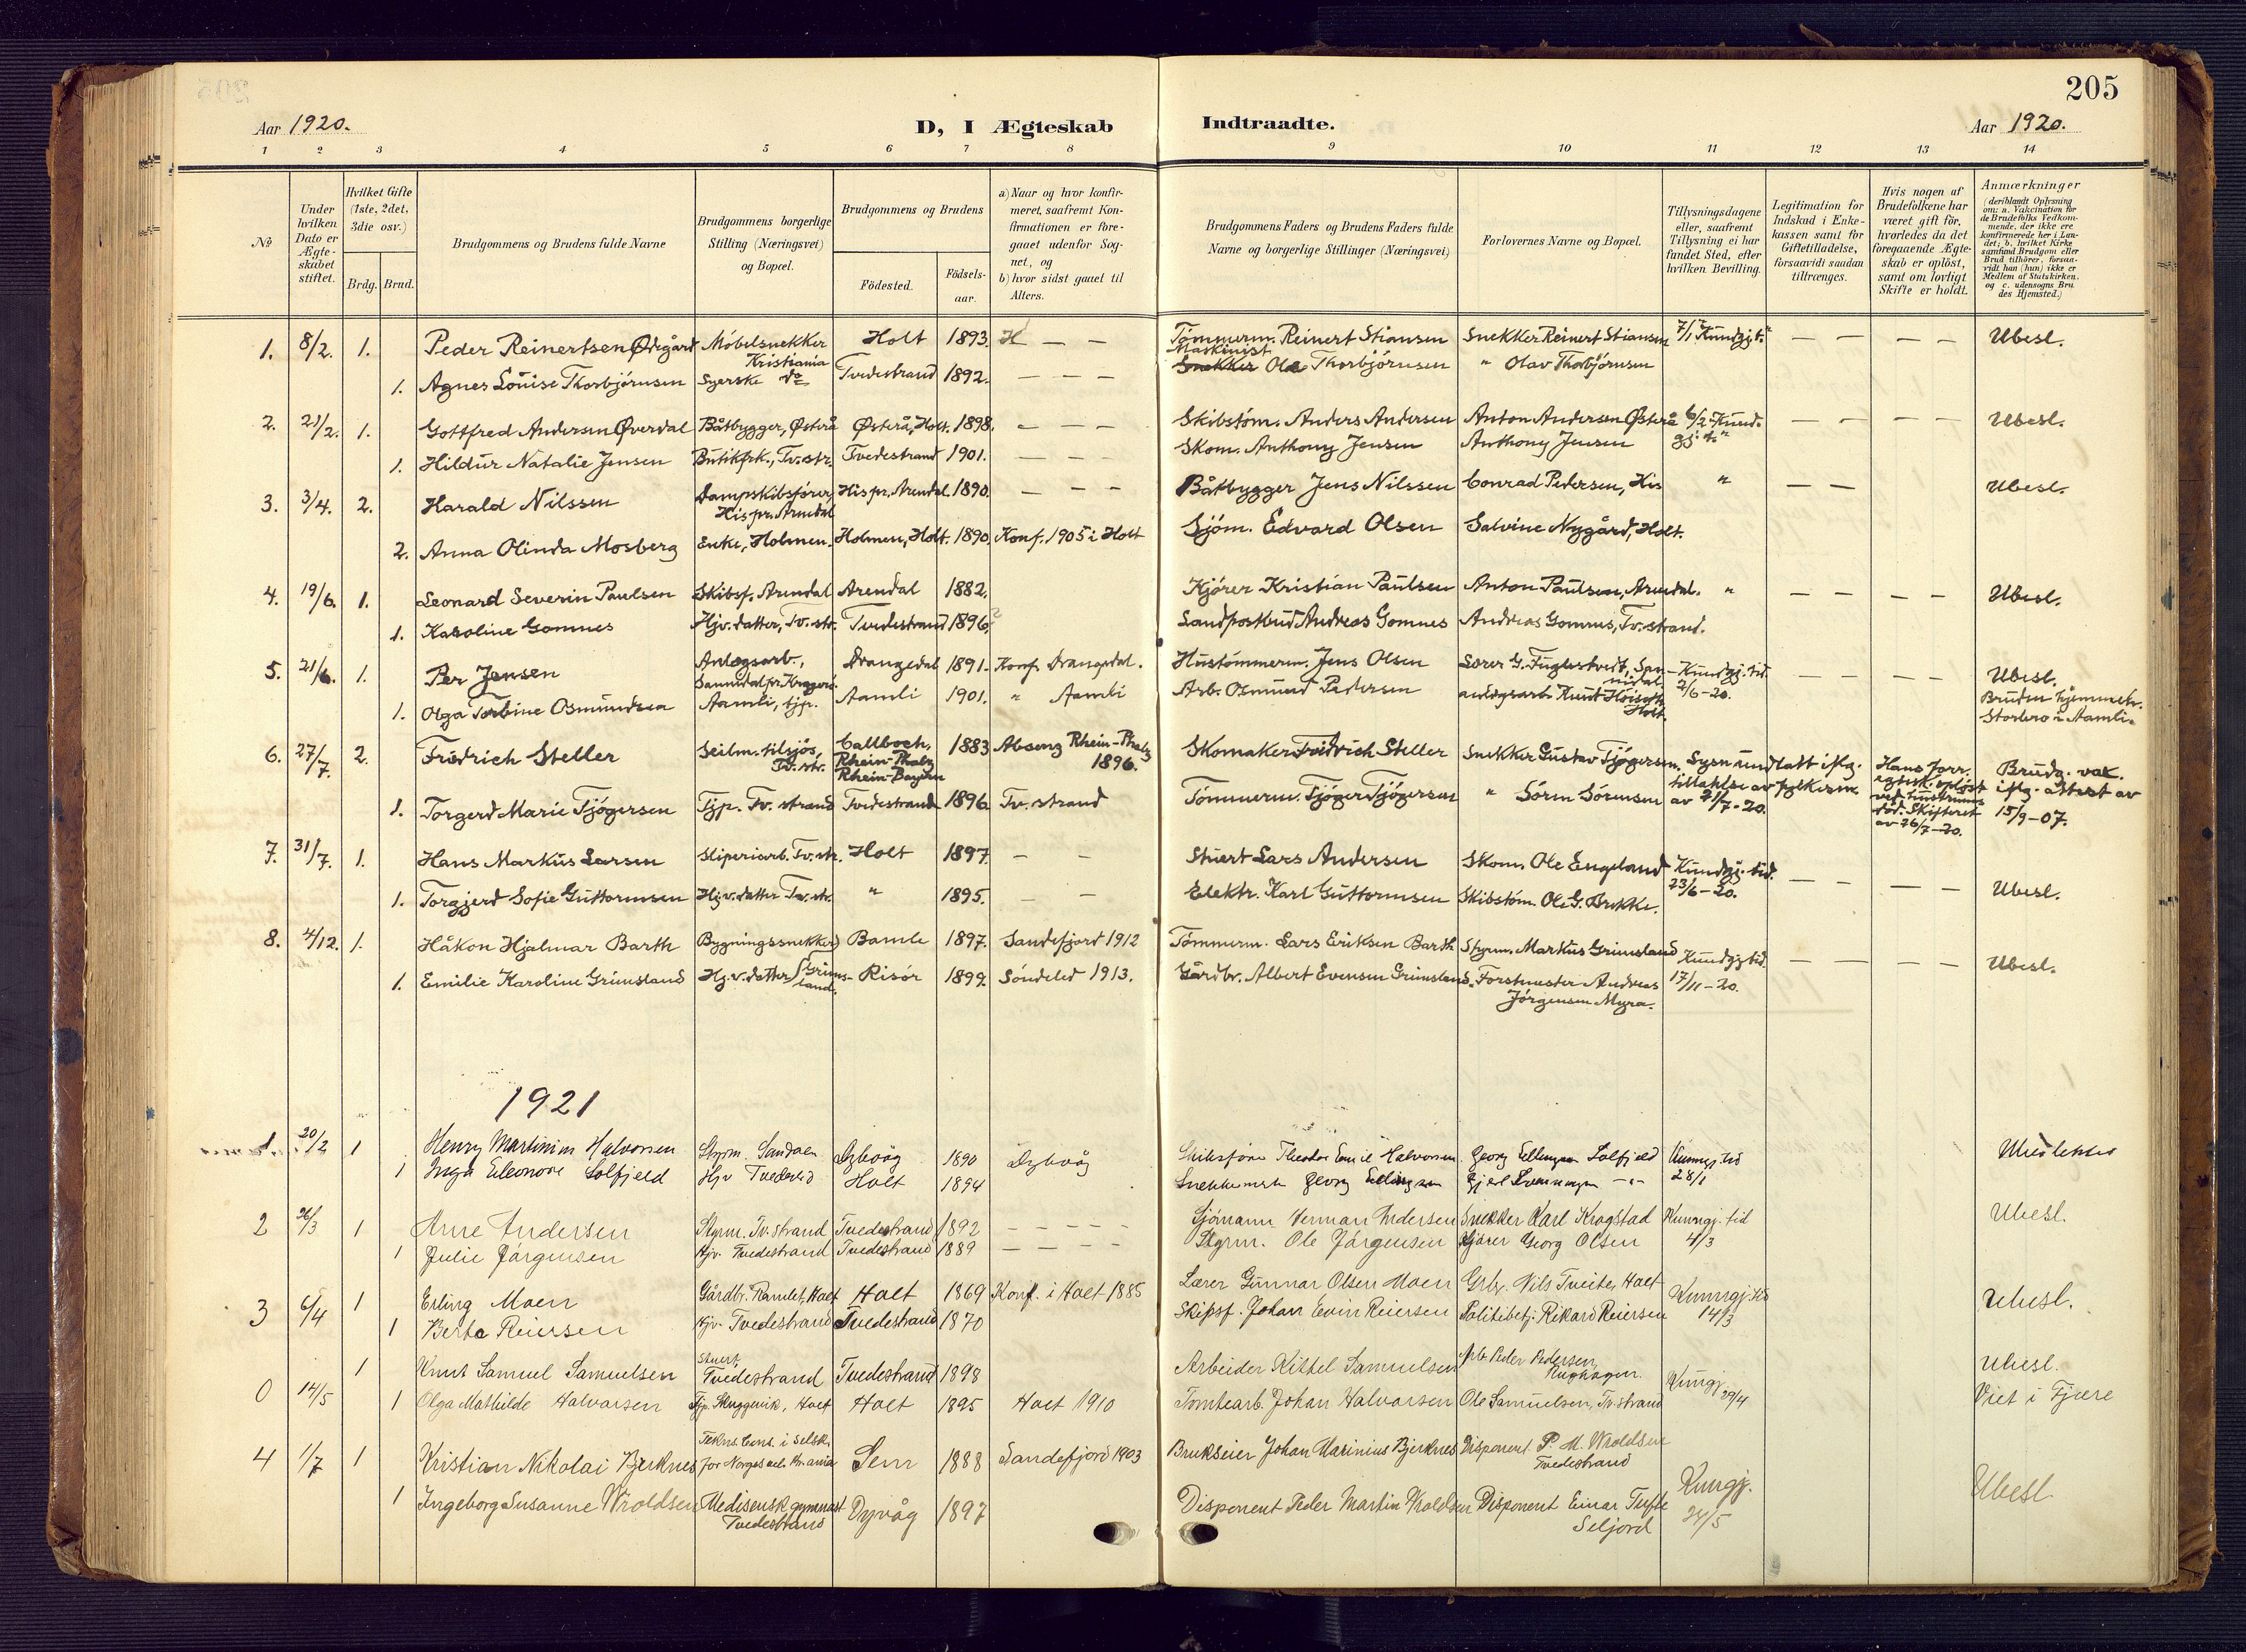 205
Aar 1920.
D, I Ægteskab
Indtraadte.
Aar 1920.
1 2 3 4 5 6 7 8 9 10 11 12 13 14
No
Under hvilken Dato er Ægteskabet stiftet.
Hvilket Gifte (1ste, 2det, 3die osv.)
Brdg. Brud.
Brudgommens og Brudens fulde Navne
Brudgommens borgerlige Stilling (Næringsvei) og Bopæl.
Brudgommens og Brudens
Födested.
Födselsaar.
a) Naar og hvor konfirmeret, saafremt Konfirmationen er foregaaet udenfor Sognet, og
b) hvor sidst gaaet til Alters.
Brudgommens Faders og Brudens Faders fulde Navne og borgerlige Stillinger (Næringsvei)
Forlovernes Navne og Bopæl.
Tillysningsdagene eller, saafremt Tillysning ei har fundet Sted, efter hvilken Bevilling.
Legitimation for Indskud i Enkekassen samt for Giftetilladelse, forsaavidt saadan tiltrænges.
Hvis nogen af Brudefolkene har været gift før, hvorledes da det foregaaende Ægteskab er oplöst, samt om lovligt Skifte er holdt.
Anmærkninger
(deriblandt Oplysning om: a. Vakcination for de Brudefolks Vedkommende, der ikke ere konfirmerede her i Landet; b. hvilket Kirkesamfund Brudgom eller Brud tilhörer, forsaavidt han (hun) ikke er Medlem af Statskirken, og c. udensogns Brudes Hjemsted.)
1. 8/2. 1. Peder Reinertsen Ødegård Møbelsnekker Kristiania Holt 1893. H — — Tømmerm. Reinert Stiansen Snekker Reinert Stiansen 7/1 "Kundgjt." — — — — Ubesl.
1. Agnes Louise Thorbjørnsen Syerske do Tvedestrand 1892. — — — Maskinist Snekker Ole Thorbjørnsen " Olav Thorbjørnsen
2. 21/2. 1. Gottfred Andersen Øverdal Båtbygger, Østerå Østerå, Holt. 1898. — — — Skibstøm. Anders Andersen Anton Andersen Østerå 6/2 "Kundgj.t." — — — — Ubesl.
1. Hildur Natalie Jensen Butikfrk., Tv.str. Tvedestrand 1901. — — — Skom. Anthony Jensen Anthony Jensen
3. 3/4. 2. Harald Nilssen Dampskibsfører, His pr. Arendal His pr. Arendal 1890. — — — Båtbygger Jens Nilssen Conrad Pedersen, His " — — Ubesl.
2. Anna Olinda Mosberg Enke, Holmen. Holmen, Holt. 1890. Konf. 1905 i Holt Sjøm. Edvard Olsen Salvine Nygård, Holt.
4. 19/6. 1. Leonard Severin Paulsen Skibsf. Arendal Arendal 1882. Kjører Kristian Paulsen Anton Paulsen, Arendal. " — — — — Ubesl.
1. Karoline Gomnes Hjv. datter, Tv. str. Tvedestrand 1896. Landpostbud Andreas Gomnes Andreas Gomnes, Tv. strand.
5. 21/6. 1. Per Jensen Anlægsarb., Sannidal pr. Kragerø Drangedal 1891. Konf. Drangedal. Hustømmerm. Jens Olsen Lærer G. Fuglestvedt, Sannidal Kundgj. tid. 2/6–20. — — — — Ubesl.
1. Olga Torbine Osmundsen Aamli, tjp. Aamli 1901. " Aamli Arb. Osmund Pedersen anlægsarb. Knut Holt. Bruden hjemmeh. i Aamli.
6. 27/7. 2. Fridrich Steller Seilm. tilsjøs, Tv. str. Callbach, Rhein-Phalz Rhein-Bayern 1883 Absenz Rhein-Phalz 1896. Skomaker Fridrich Steller Snekker Gustav Tjøgersen. Lysn. undlatt iflg. tillatelse av fylkesm. av 21/7-20. Hans forr. egtesk. opløst ved hustruens død. Skifteret av 26/7–20. Brudg. vak. iflg. attest av 15/9–07.
1. Torgerd Marie Tjøgersen Tjp. Tv. strand Tvedestrand 1896. Tv. strand Tømmerm. Tjøger Tjøgersen " Sørен Sørensen
7. 31/7. 1. Hans Markus Larsen Sliperiarb. Tv. str. Holt 1897. — — Stuert Lars Andersen Skom. Ole Engeland Kundgj. tid. 23/6–20. — — — — Ubesl.
1. Torgjerd Sofie Guttormsen Hjv. datter Tv. str. " 1895. — — Elektr. Karl Guttormsen Skibstøm. Ole G. Brekke.
8. 4/12. 1. Håkon Hjalmar Barth Bygningssnekker Bamle 1897. Sandefjord 1912 Tømmerm. Lars Eriksen Barth Styrm. Markus Grimsland Kundgj tid. 17/11–20. — — — — Ubesl.
1. Emilie Karoline Grimsland Hj.v. datter Grimsland. Risør 1899. Søndeled 1913. Gårdbr. Albert Evensen Grimsland. Forstmester Andreas Jørgensen Myra.
1921
1. 20/2 1 Henry Martinius Halvorsen Styrm. Sandøen Dybvåg 1890 Dybvåg Skibsfører Theodor Emil Halvorsen Georg Ellingsen Solfjeld Kunngj. tid 28/1
1 Inga Eleonore Solfjeld Hjv Holt 1894 Georg Ellingsen
2 26/3 1 Arne Andersen Styrm. Tv.strand Tvedestrand 1892 — — — — Sjømann Herman Andersen Snekker Karl Kragstad Kunngj. tid 4/3 Ubesl.
1 Julie Jørgensen Hjv. Tvedestrand Tvedestrand 1889 — — — — Styrm. Ole Jørgensen Kjører Georg Olsen
3 6/4 1 Erling Moen Gårdbr. Ramlet, Holt Holt 1869 Konf. i Holt 1885 Lærer Gunnar Olsen Moen Grbr. Nils Tveite, Holt Kunngj. tid 14/3 Ubesl.
1 Berta Reiersen Hjv. Tvedestrand Tvedestrand 1870 Skipsf. Johan Even Reiersen Politibetj. Rikard Reiersen
0 14/5 1 Knut Samuel Samuelsen Stuert, Tvedestrand Tvedestrand 1898 Arbeider Kittel Samuelsen Arb. Peder Pedersen, Kungj. 29/4 Ubesl.
1 Olga Mathilde Halvorsen Tjp. Skuggevik, Holt Holt 1895 Holt 1910 Tomtearb. Johan Halvorsen Ole Samuelsen, Tv. strand Viet i Fjære
4 1/7 1 Kristian Nikolai Bjerknes i Selsk. for Norges vel. Kr.ania Sem 1888 Sandefjord 1903 Brukseier Johan Marinius Bjerknes Disponent P. M. Wroldsen Tvedestrand Kungj. 24/5 Ubesl
1 Ingeborg Susanne Wroldsen Medisensk gymnast Tvedestrand Dypvåg 1897 Disponent Peder Martin Wroldsen Disponent Einar Tufte Seljord